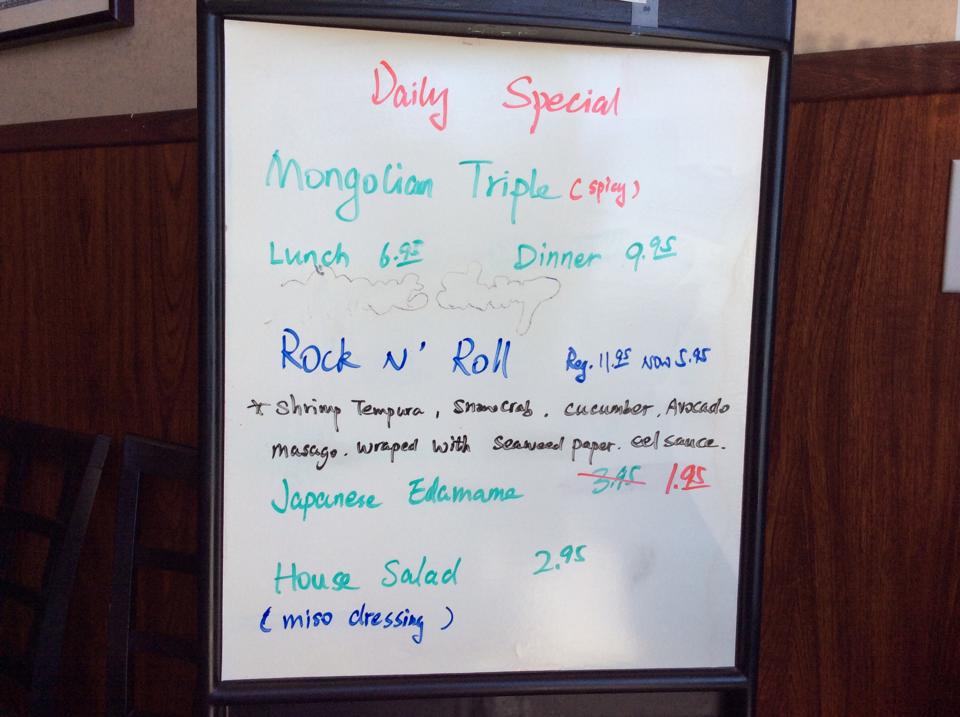 Daily Special
Mongolian Triple (spicy)
Lunch 6.95 Dinner 9.95
Rock N' Roll Reg. 11.95 Now 5.95
* Shrimp Tempura, Snowcrab. cucumber. Avocado
masago. wraped with Seaweed paper. eel sauce.
Japanese Edamame 3.95 1.95
House Salad 2.95
(miso dressing)